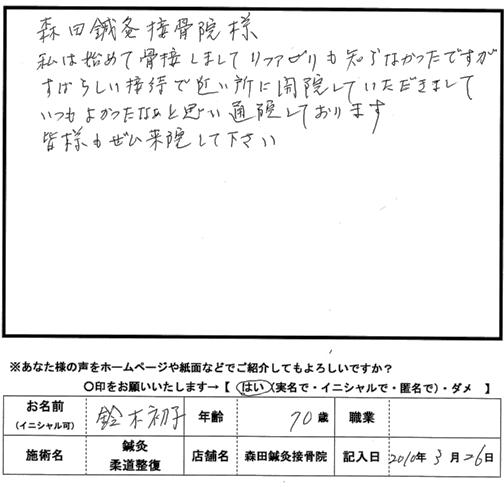 森田鍼灸接骨院様
私は始めて骨接しましてリハビリも知らなかったですが
すばらしい接待で近い所に開院していただきまして
いつもよかったなぁと思い通院しております
皆様もぜひ来院して下さい
※あなた様の声をホームページや紙面などでご紹介してもよろしいですか？
〇印をお願いいたします→【 はい（実名で・イニシャルで・匿名で）・ダメ 】
お名前 （イニシャル可） 鈴木初子 年齢 70歳 職業
施術名 鍼灸 柔道整復 店舗名 森田鍼灸接骨院 記入日 2010年3月26日